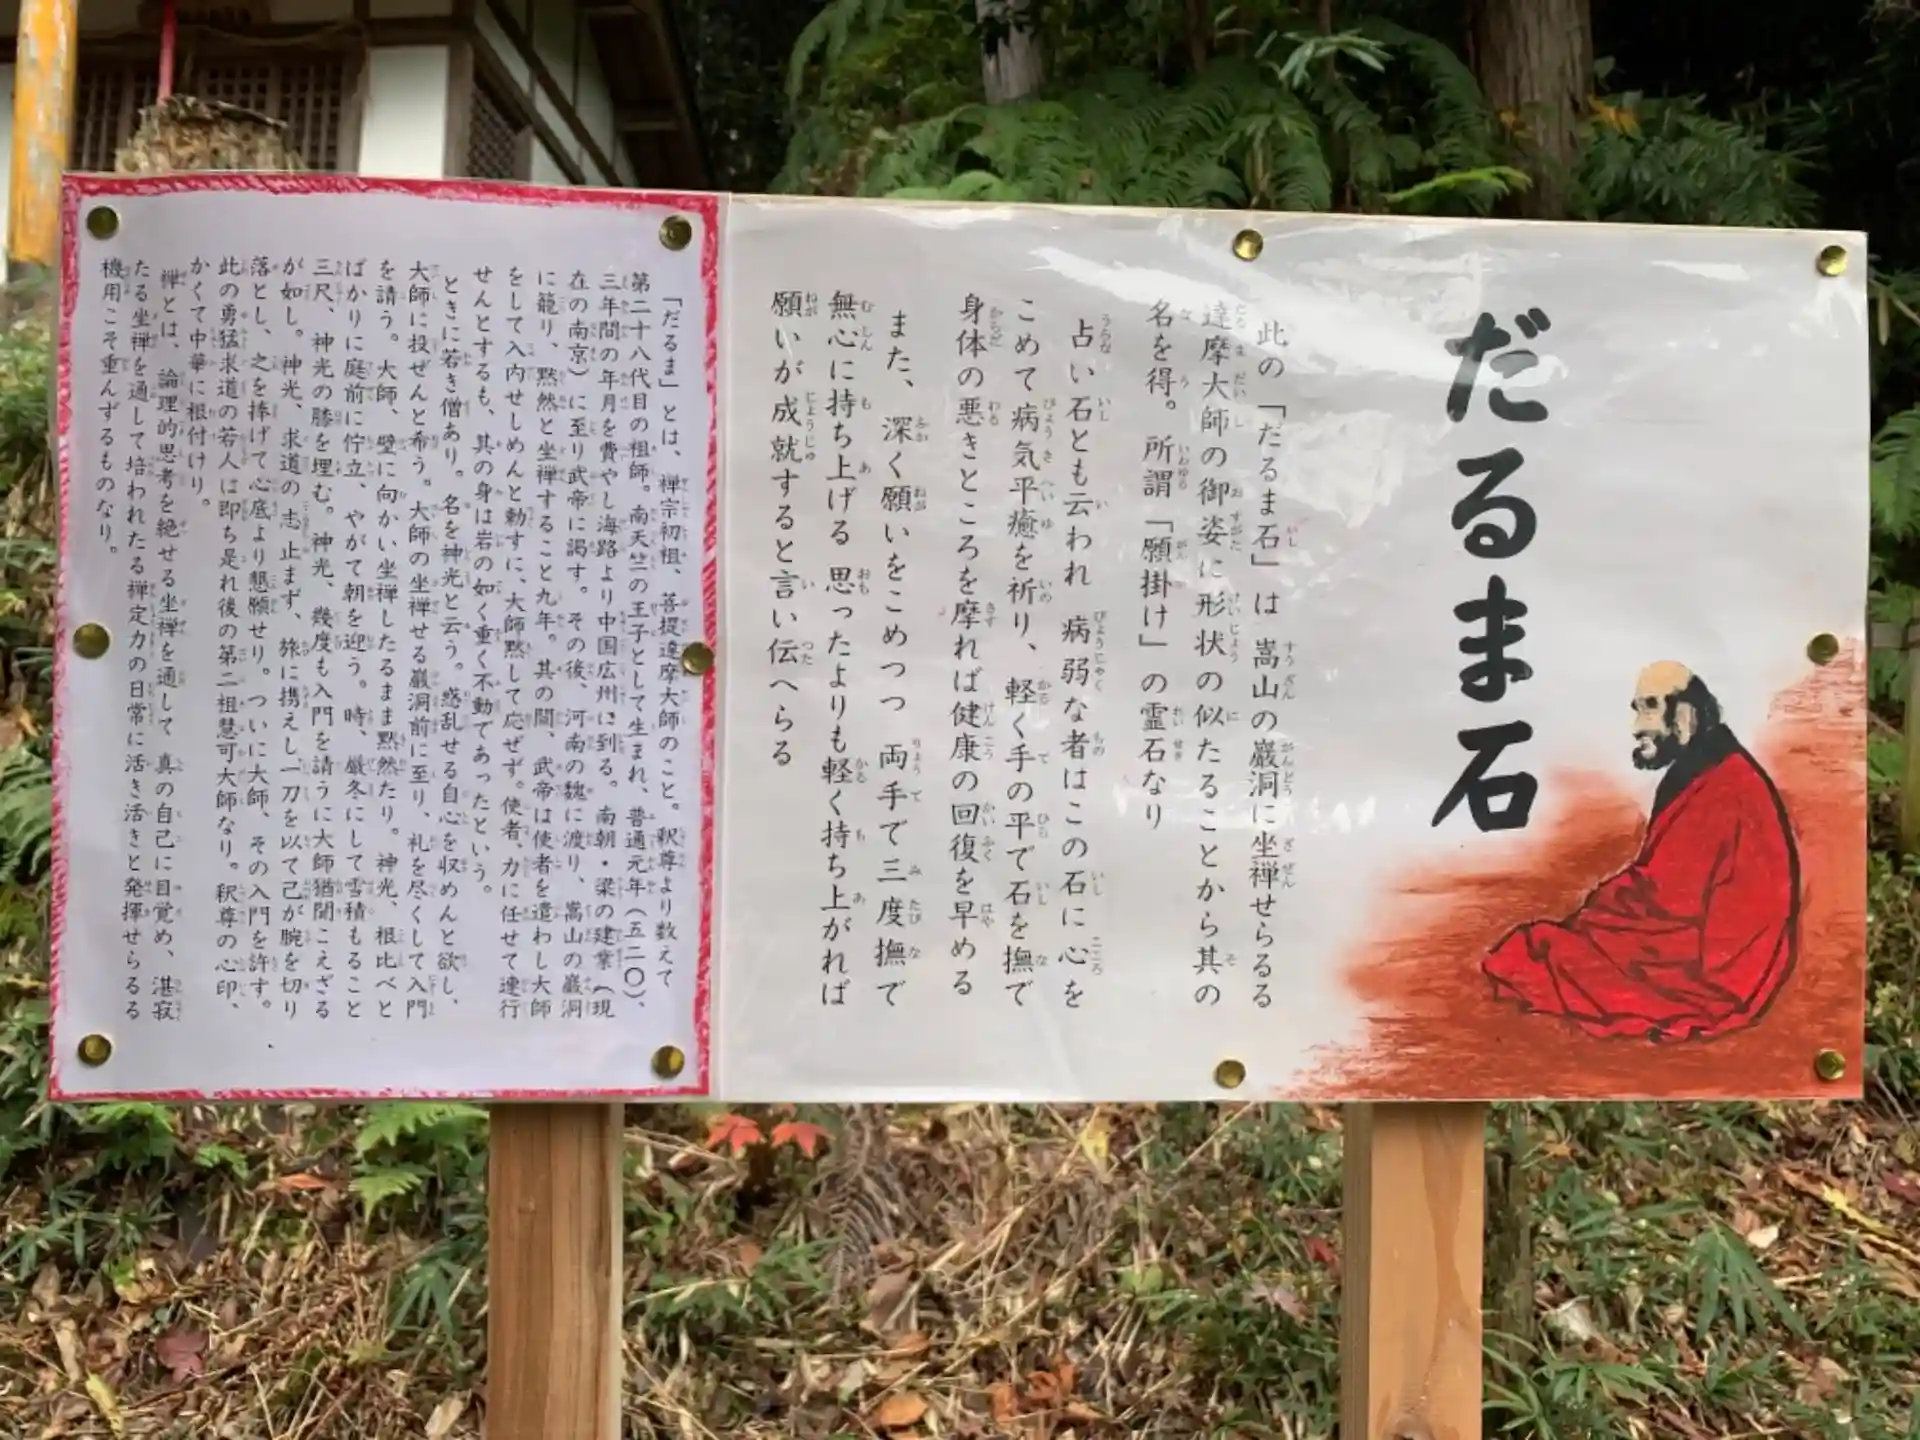 だるま石
此の「だるま石」は 嵩山の巖洞に坐禅せらるる
達摩大師の御姿に形状の似たることから其の
名を得。所謂「願掛け」の霊石なり
占い石とも云われ 病弱な者はこの石に心を
こめて病気平癒を祈り、軽く手の平で石を撫で
身体の悪きところを摩れば健康の回復を早める
また、深く願いをこめつつ 両手で三度撫で
無心に持ち上げる 思ったよりも軽く持ち上がれば
願いが成就すると言い伝へらる
「だるま」とは、禅宗初祖、菩提達摩大師のこと。釈尊より数えて
第二十八代目の祖師。南天竺の王子として生まれ、普通元年（五二〇）、
三年間の年月を費やし海路より中国広州に到る。南朝・梁の建業（現
在の南京）に至り武帝に謁す。その後、河南の魏に渡り、嵩山の巖洞
に籠り、黙然と坐禅すること九年。其の間、武帝は使者を遣わし大師
をして入内せしめんと勅すに、大師黙して応ぜず。使者、力に任せて連行
せんとするも、其の身は岩の如く重く不動であったという。
ときに若き僧あり。名を神光と云う。惑乱せる自心を収めんと欲し、
大師に投ぜんと希う。大師の坐禅せる巖洞前に至り、礼を尽くして入門
を請う。大師、壁に向かい坐禅したるまま黙然たり。神光、根比べと
ばかりに庭前に佇立、やがて朝を迎う。時、厳冬にして雪積もること
三尺、神光の膝を埋む。神光、幾度も入門を請うに大師猶聞こえざる
が如し。神光、求道の志止まず、旅に携えし一刀を以て己が腕を切り
落とし、之を捧げて心底より懇願せり。ついに大師、その入門を許す。
此の勇猛求道の若人は即ち是れ後の第二祖慧可大師なり。釈尊の心印、
かくて中華に根付けり。
禅とは、論理的思考を絶せる坐禅を通して 真の自己に目覚め、湛寂
たる坐禅を通して培われたる禅定力の日常に活き活きと発揮せらるる
機用こそ重んずるものなり。